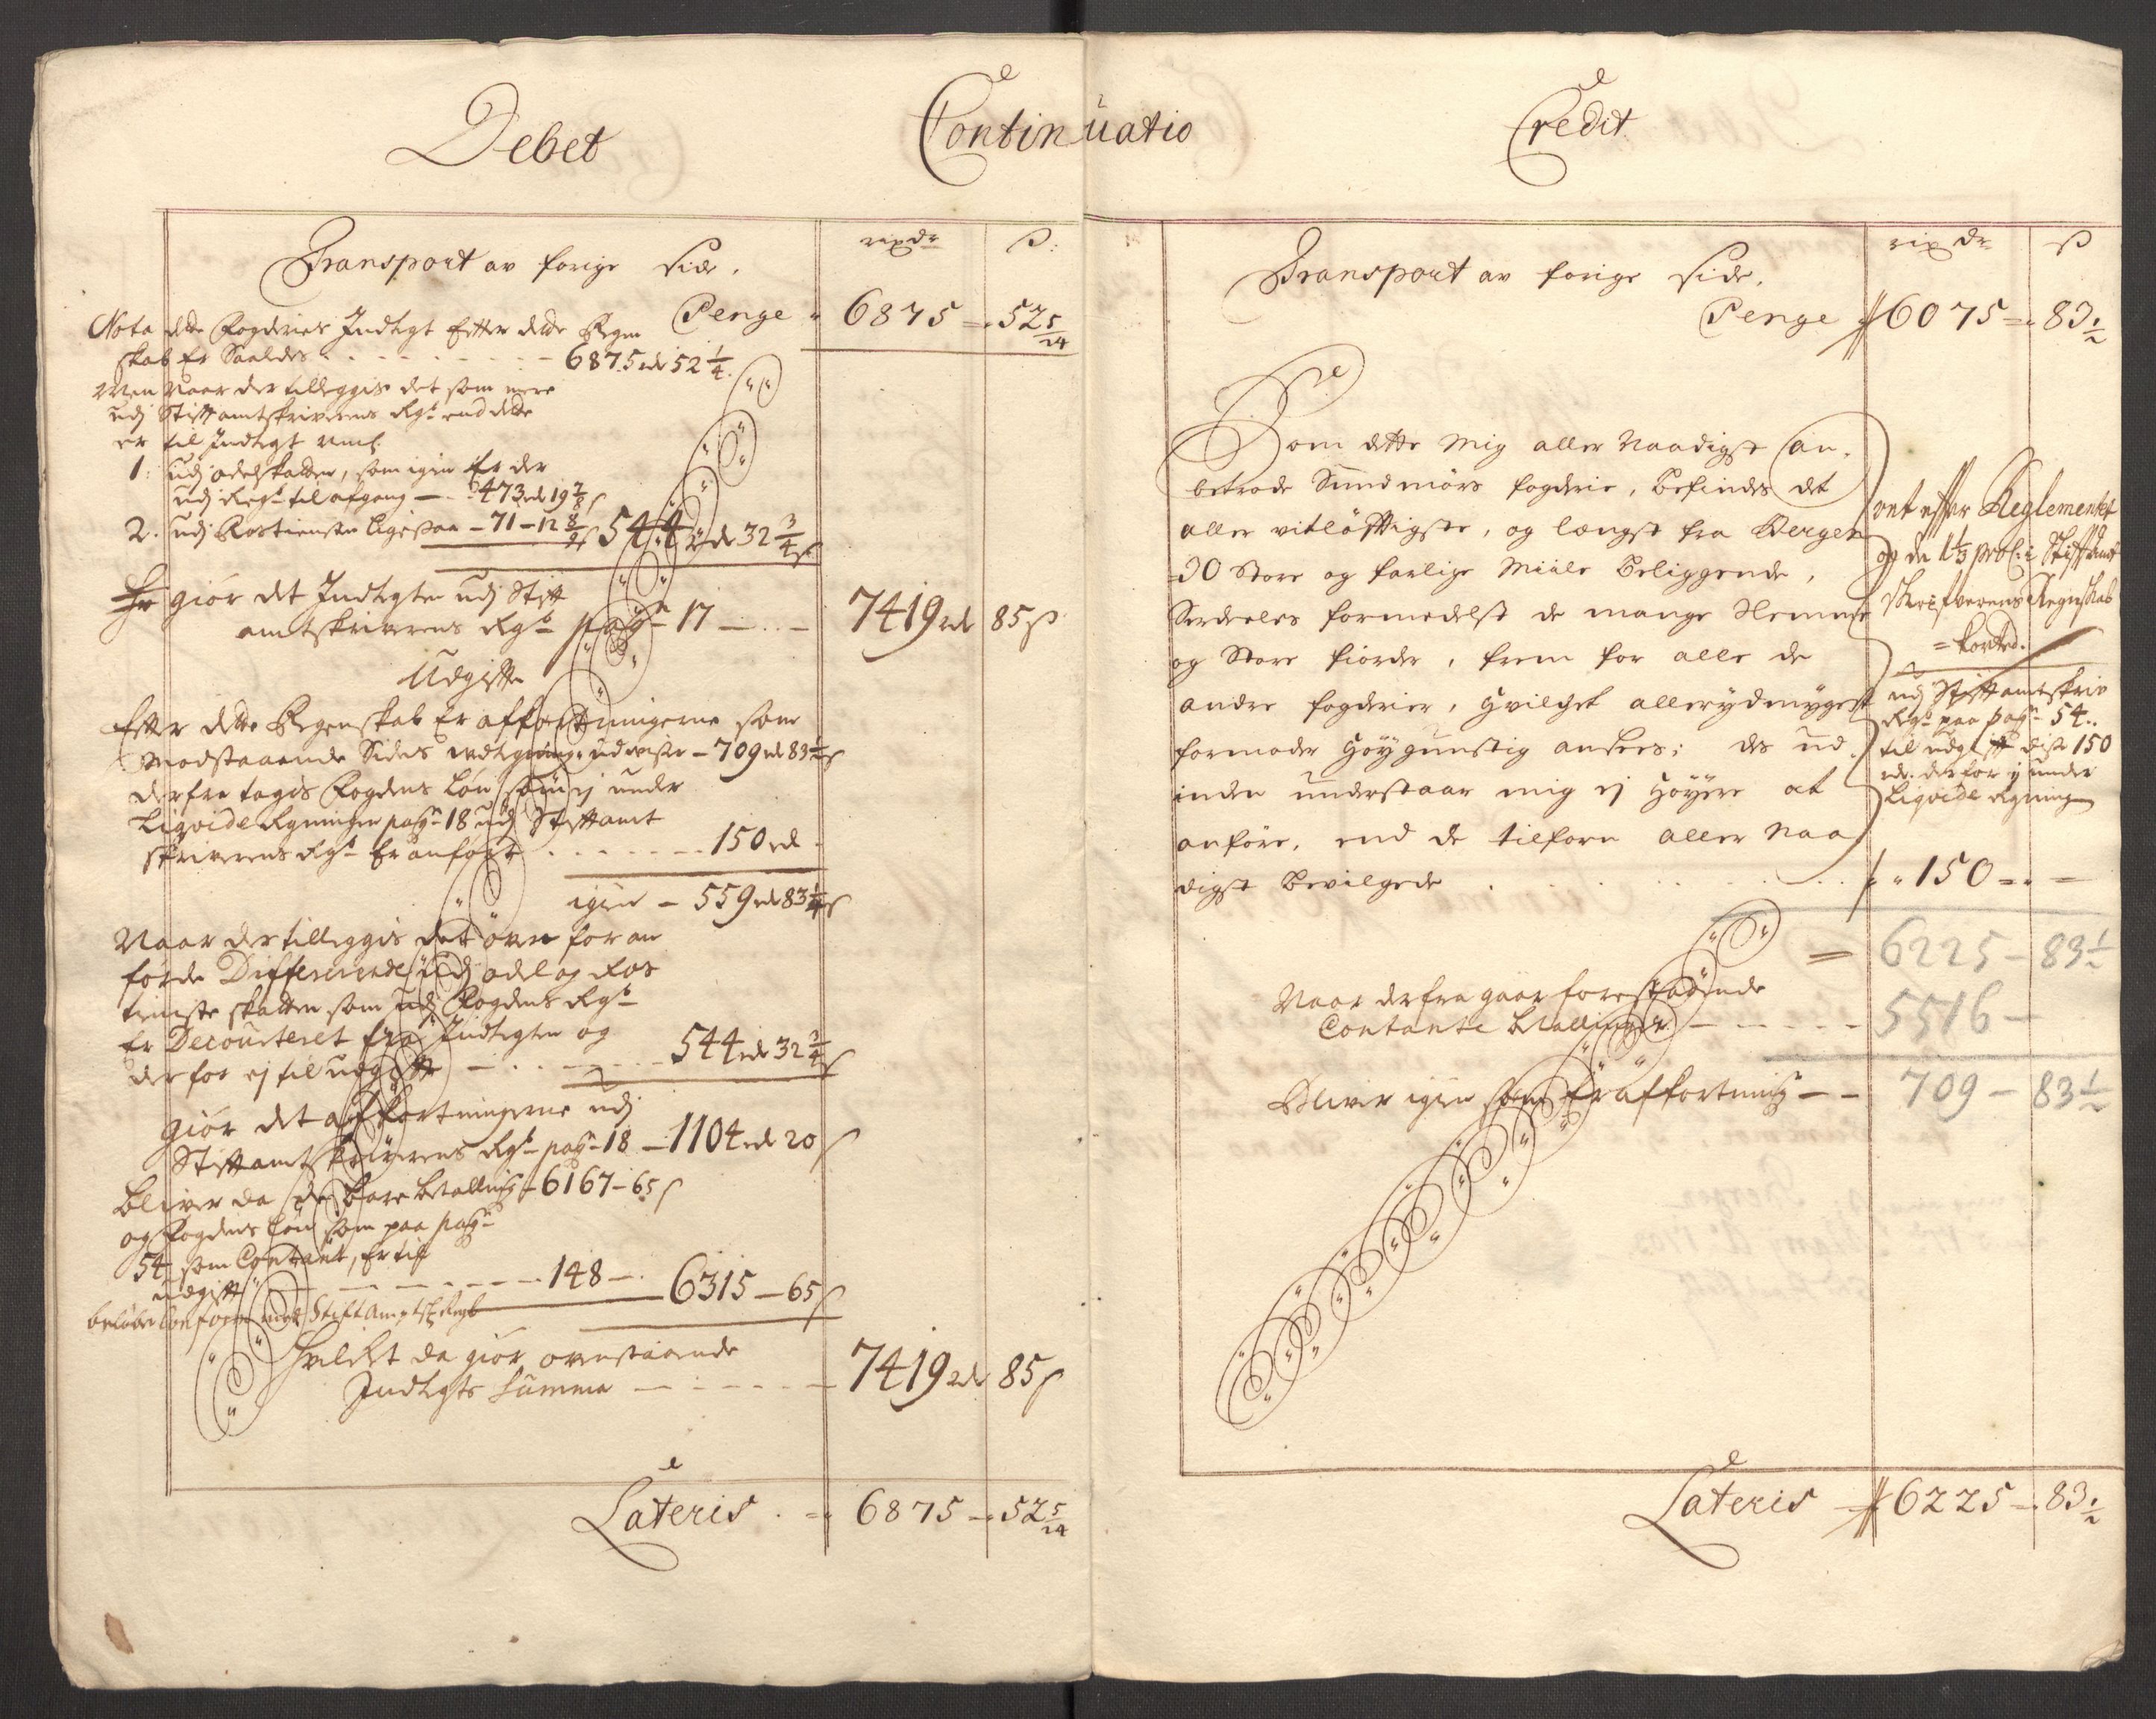 Debet
Continuatio
Credit
rixdr
ß:
Transport av forige side.
Penge
6875 – 52 5/24
Nota dette Fogderies Indtegt Efter dette Regen
skab Er Saaledes - - - - 6875 rdr 52 1/4.
Men Naar der tilleggis det som mere
udj Stiftamtskriverens Rgb end dette
er til Indtegt neml.
1. udj odelskatten, som igien Er der
udj Regb til afgang — 473 rdr 19 7/8 ß
2. udj Rostiensten ligesaa – 71 – 12
544 rdr 32 3/4 ß
giør det Indtegten udj Stift
amtskriverens Rgb pag 17
7419 rdr 85 ß
Udgifft
Efter dette Regenskab Er affkortningerne som
Modstaaende Sides udviser – 709 rdr 83 1/4 ß
derfra tagis Fogdens Løn som ej under
Liqvide Regningen pag 18 udj Stiftamt
skriverens Rgb Er anført - - - 150 rdr
igien – 559 rdr 83 1/4 ß
Naar der tilleggis det oven for an
førde Differerende udj odel og Ros
tieniste skatten som udj Fogdens Rgb
Er Decourteret fra Indtegten og
derfor ej til udgifft - - - 544 rdr 32 3/4 ß
giør det affkortningerne udj
Stiftamtskriverens Rgb pag 18 – 1104 rdr 20 ß
bliver da de bare betalling – 6167 – 65 ß
og Fogdens Løn som paa pag
54 som Contant, Er til
udgifft - - - - 148 –
6315 – 65 ß
Stiftamptsk Regb
Hvilket da giør ovenstaaende
Indtegts Summa
7419 rdr 85 ß
Lateris
6875 – 52 5/24
rixdr
ß
Transport av forige side.
Penge
6075 – 83 1/2
Som dette Mig aller Naadigst an,
betrode Sundmørs fogderie, befindes det
aller vitløfftigste, og længst fra Bergen
30 store og farlige Miile beliggende,
Serdeeles formedelst de mange Stemme
og Store fiorder, frem for alle de
andre fogderier, hvilchet allerydmygest
formoder høygunstig ansees; des ud,
inden understaar mig ej høyere at
anføre, end de tilforn aller Naa
digst bevilgede
150 – –
ret effter Reglementet
og de 1 1/3 Stifftambt
Skrifverens Regnskab
= korted.
udj Stiftamtskriv
Rgb paa pag 54..
til udgifft disse 150
rdr. derfor ej under
Liqvide Regningen
6225 – 83 1/2
Naar derfra gaar forestaaende
Contante betallinger
5516 –
Bliver igien som Er affkortning
709 – 83 1/2
Lateris
6225 – 83 1/2